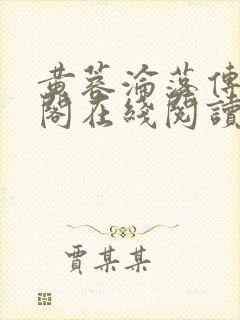 黄蓉淪落傳
閣在綫閱讀
賈某某